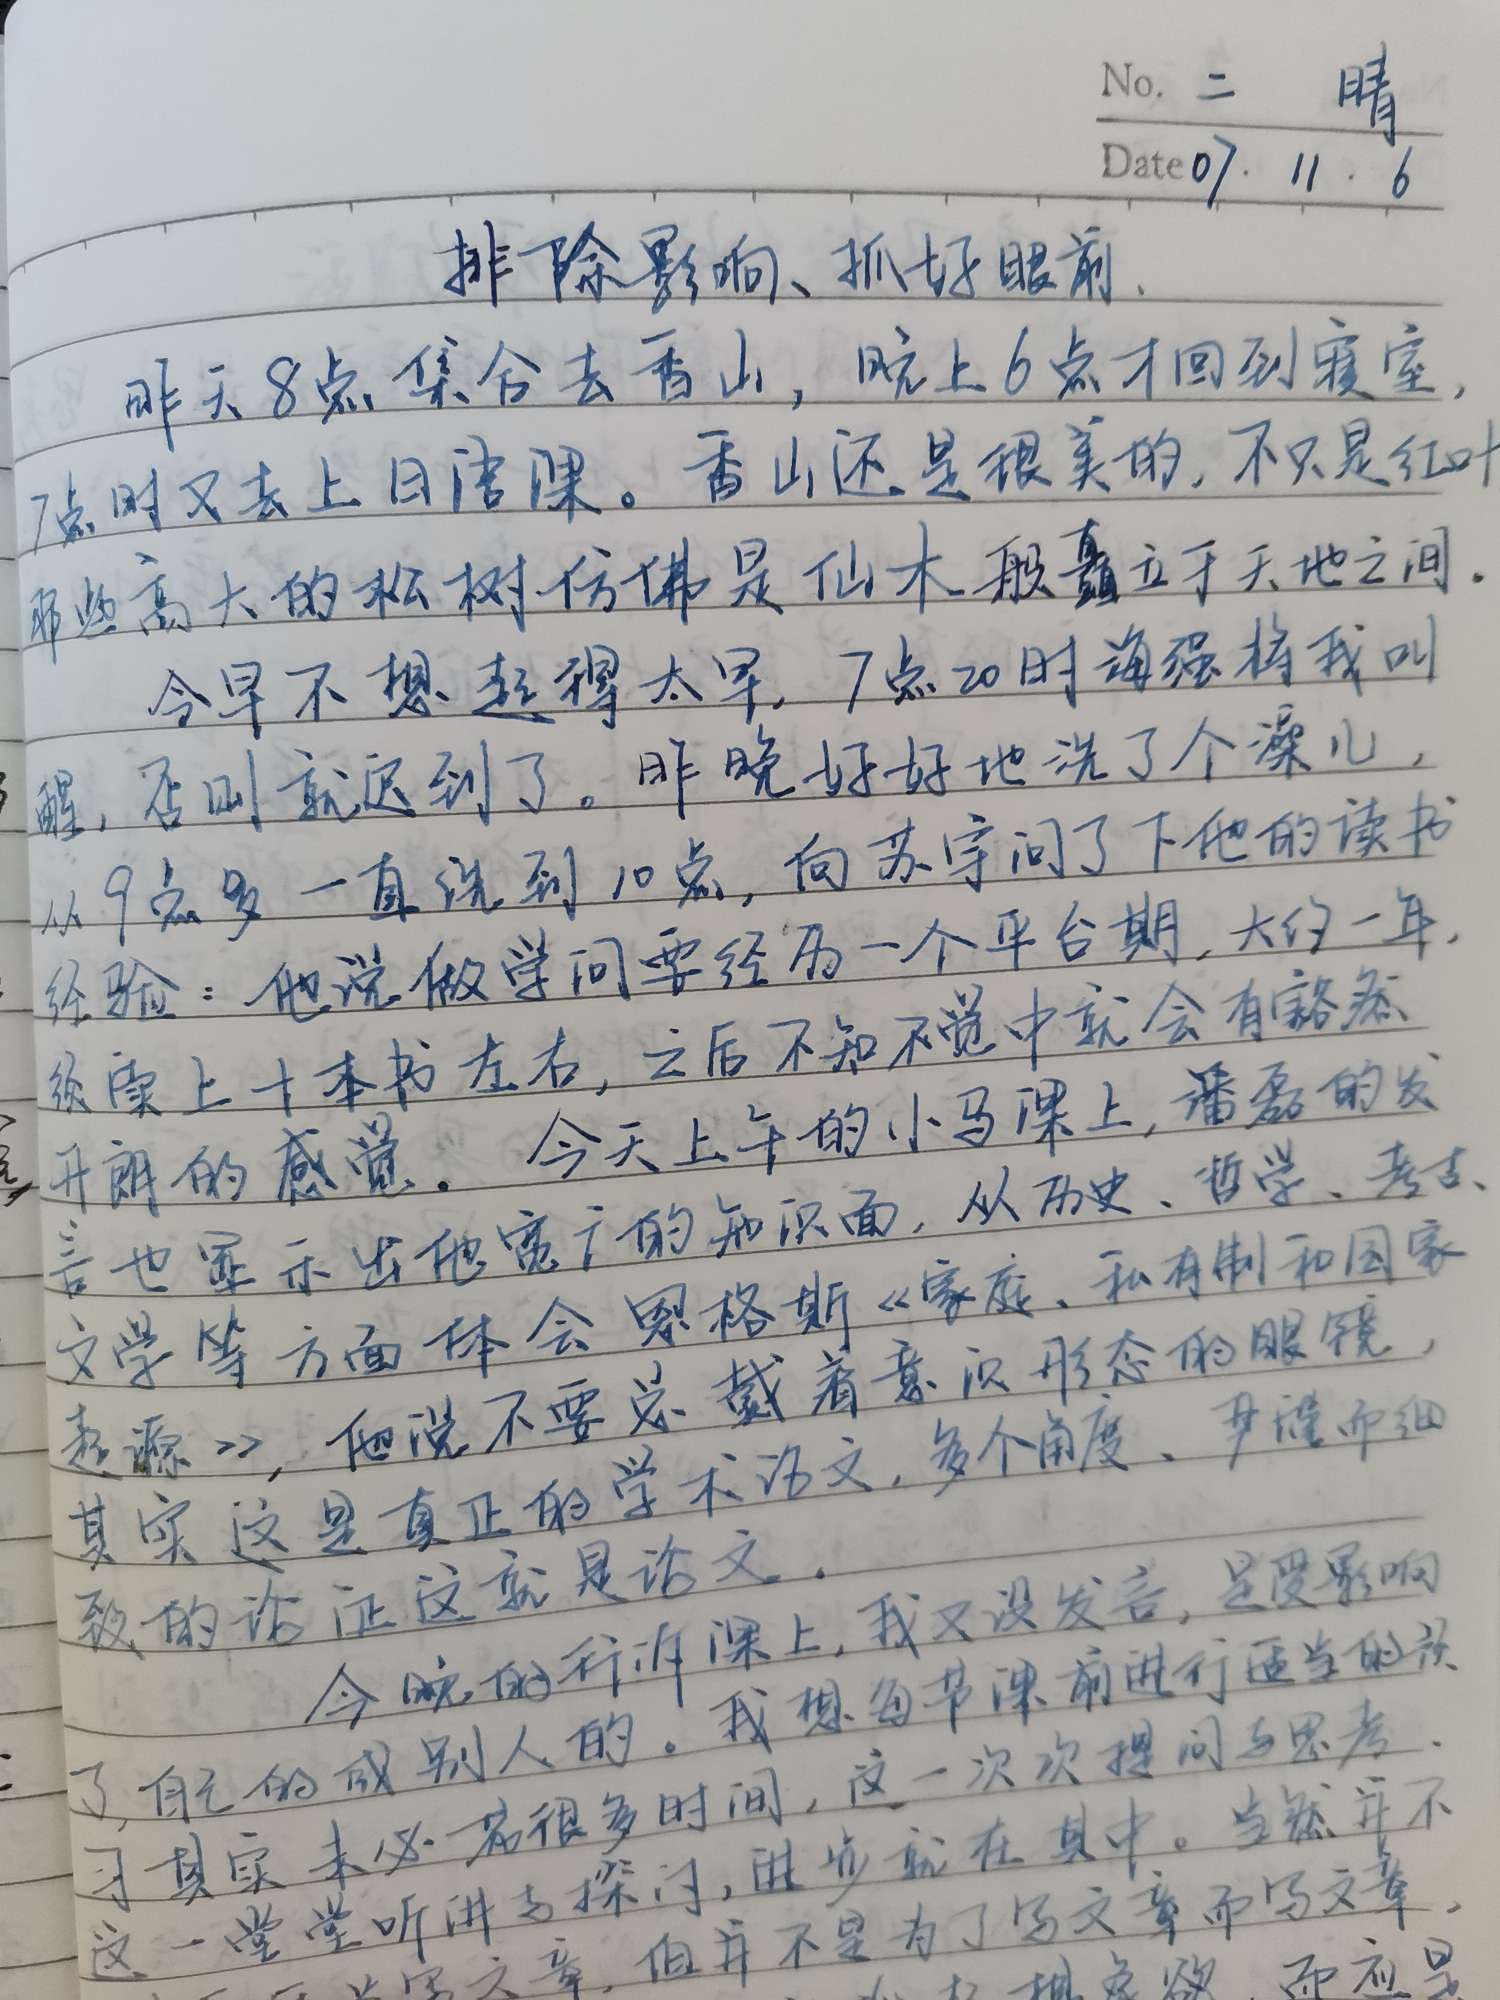 No. 二 晴
Date 07. 11. 6
排除影响、抓好眼前.
昨天8点集合去香山，晚上6点才回到寝室，
7点时又去上日语课。香山还是很美的，不只是红叶
那些高大的松树仿佛是仙木般矗立于天地之间.
今早不想起得太早，7点20时海强将我叫
醒，否则就迟到了。昨晚好好地洗了个澡儿，
从9点多一直洗到10点，向苏宇问了下他的读书
经验：他说做学问要经历一个平台期，大约一年，
须读上十本书左右，之后不知不觉中就会有豁然
开朗的感觉。今天上午的小马课上，潘磊的发
言也显示出他宽广的知识面，从历史、哲学、考古、
文学等方面体会恩格斯《家庭、私有制和国家
起源》，他说不要总戴着意识形态的眼镜，
其实这是真正的学术论文，多个角度、严谨而细
致的论证这就是论文.
今晚的行诉课上，我又没发言，是受影响
了，自己的或别人的。我想每节课前进行适当的预
习其实未必花很多时间，这一次次提问与思考.
这一堂堂听讲与探讨，进步就在其中。当然并不
写文章，但并不是为了写文章而写文章，
而应是